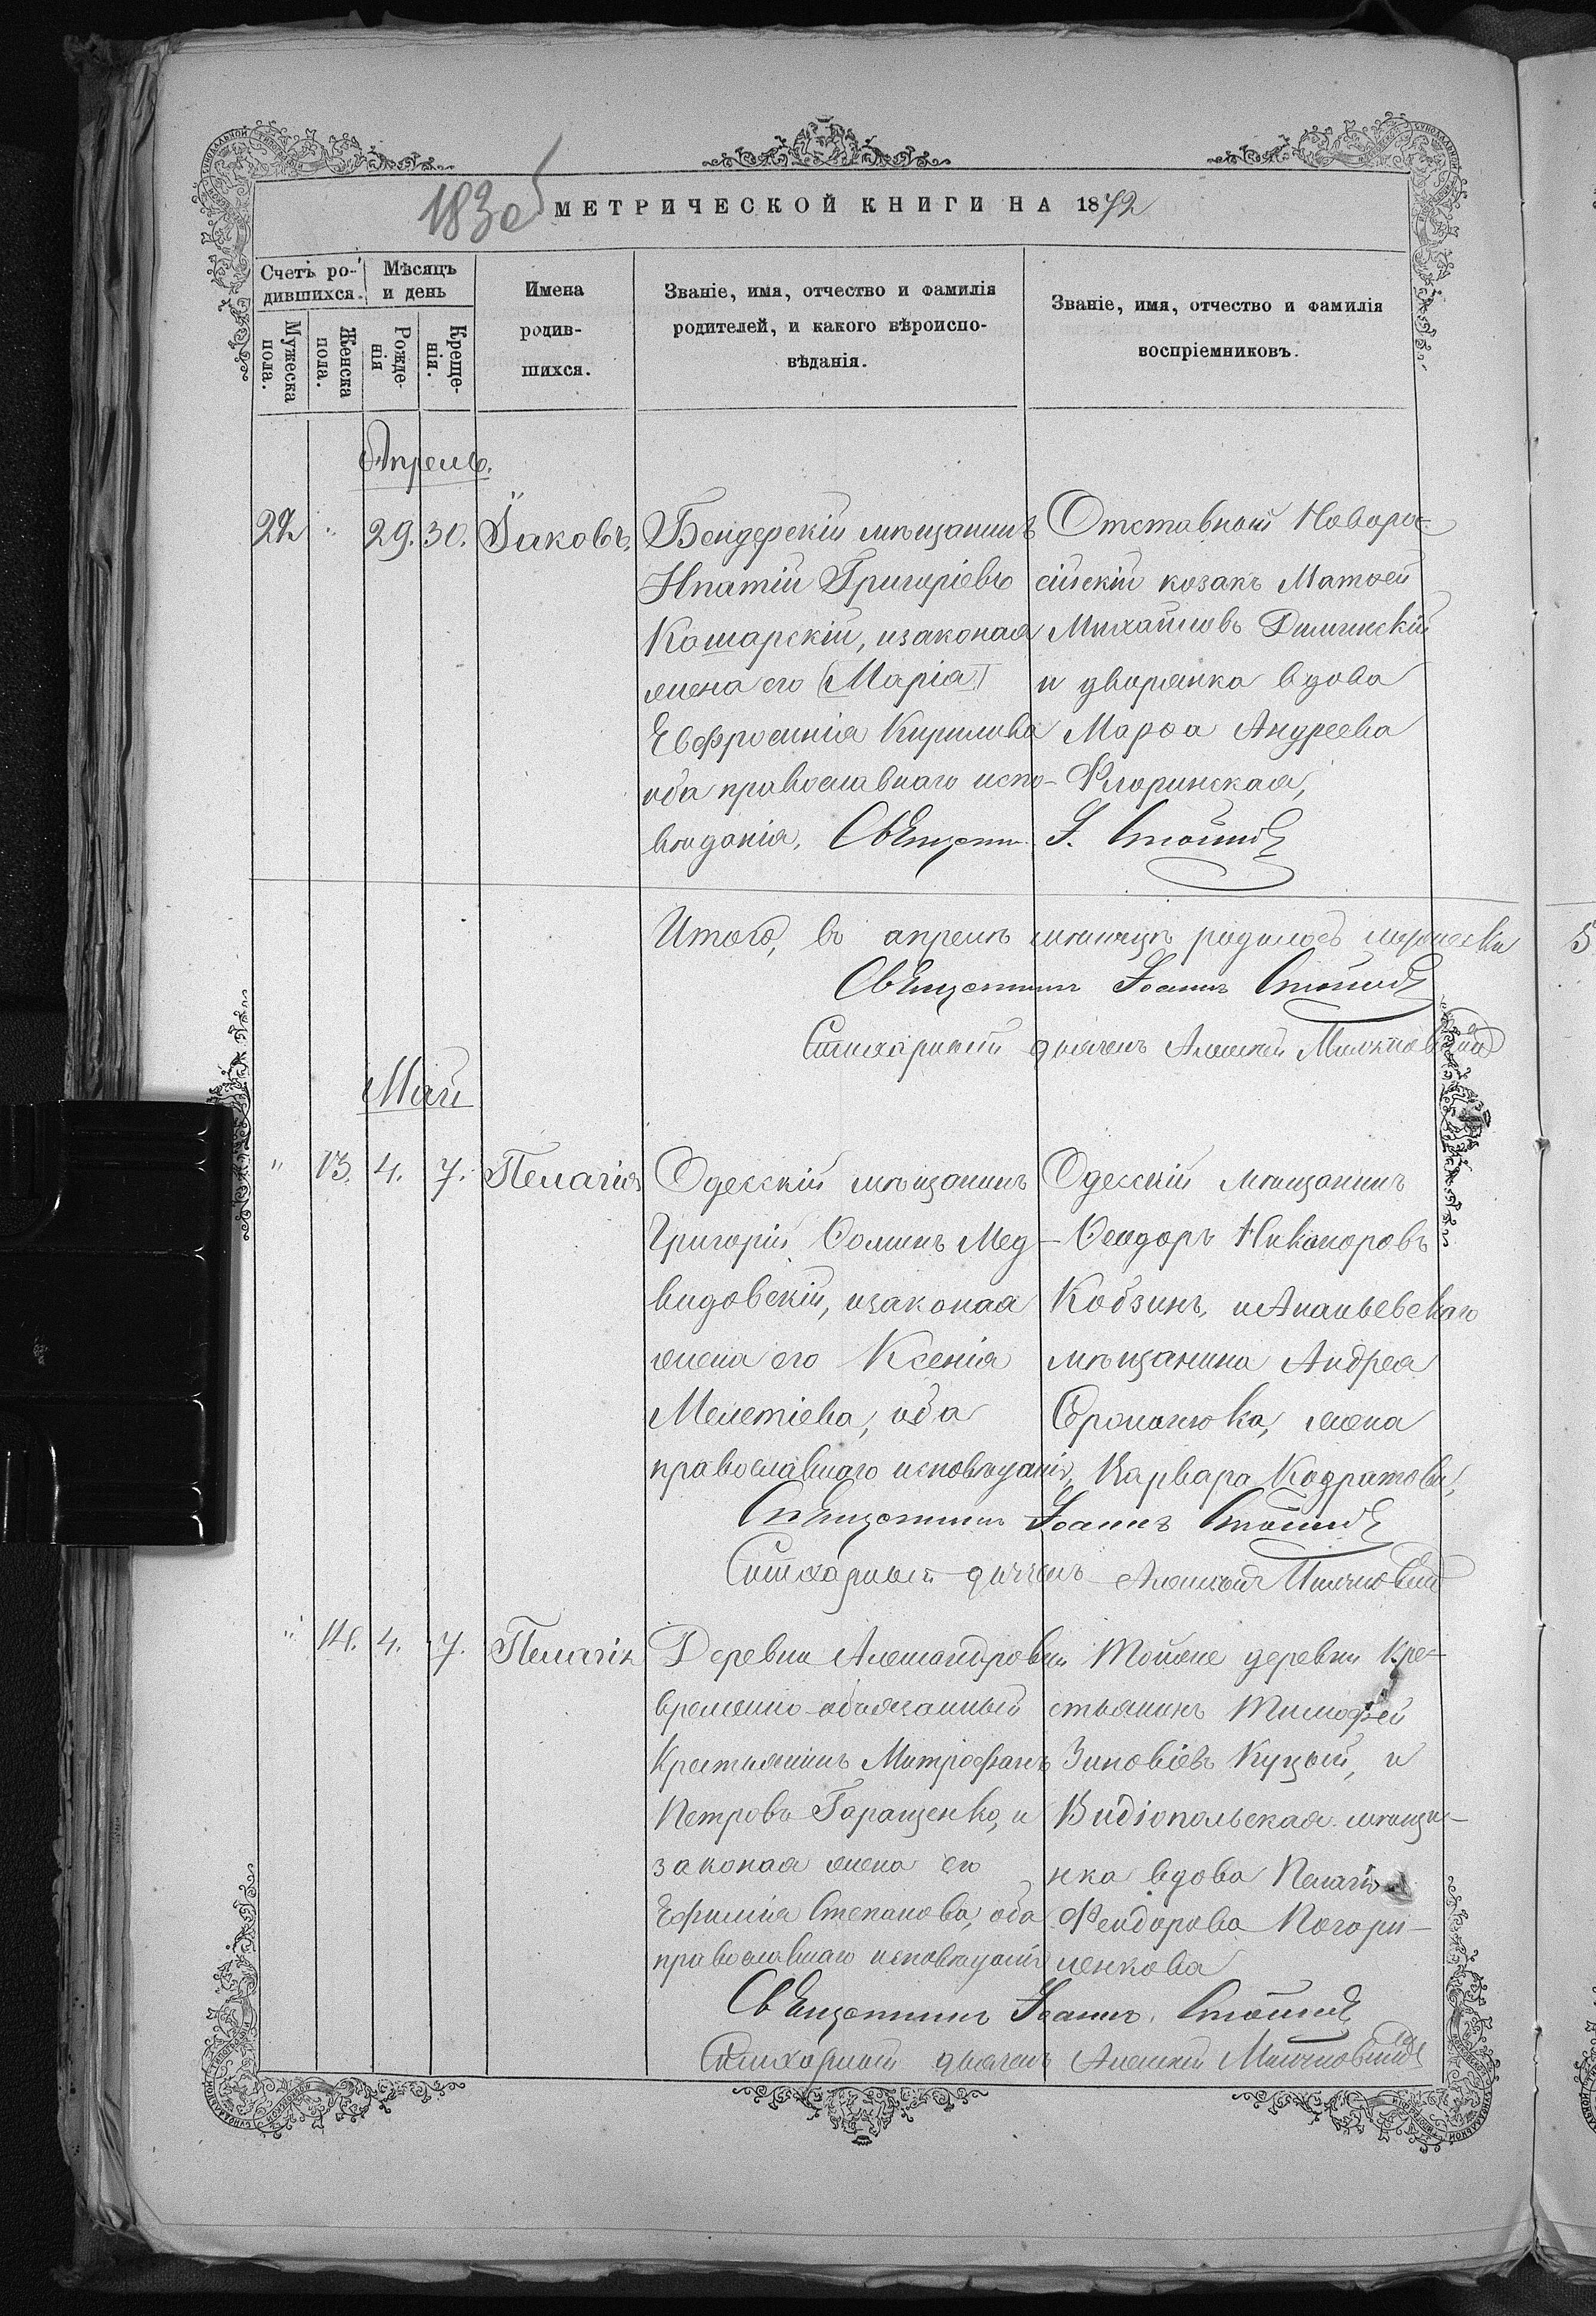 183об
МЕТРИЧЕСКОЙ КНИГИ НА 1872
Счетъ ро-
дившихся.
Мѣсяцъ
и день
Мужеска
пола.
Женска
пола.
Рожде-
нія
Креще-
нія.
Имена
родив-
шихся.
Званіе, имя, отчество и фамилія
родителей, и какого вѣроиспо-
вѣданія.
Званіе, имя, отчество и фамилія
воспріемниковъ.
Апрель.
22 " 29. 30. Іаковъ.
Бендерскій мѣщанинъ
Ипатій Григоріевъ
Кошарскій, изаконая
жена его (Марія)
Евфросинія Кирилова
оба православнаго испо-
вѣданія. Священн. І.
Отставной Новорос-
сійскій козакъ Матѳей
Михайловъ
и дворянка вдова
Марѳа Андреева
Флоринская,
Итого, въ апрелѣ мѣсяцѣ родилось мужеска
5
Священникъ Іоаннъ
Стихарный дьячекъ Алексѣй
Май
" 13. 4. 7. Пелагія
Одесскій мѣщанинъ
Григорій Ѳоминъ Мед-
видовскій, изаконая
жена его Ксенія
Мелетіева, оба
православнаго исповѣданія,
Одесскій мѣщанинъ
Ѳеодоръ Никоноровъ
Кобзинъ, и Ананьевскаго
мѣщанина Андрея
жена
Варвара Кодратова,
Священникъ Іоаннъ
Стихарный дьячекъ Алексѣй
" 14. 4. 7. Пелагія
Деревни Александровки
временно-обязанный
Крестьянинъ Митрофанъ
Петровъ Гаращенко, и
законая жена его
Ефимія Степанова, оба
православнаго исповѣданія
Тойже деревни Кре-
стьянинъ Тимофей
Зиновіевъ Куцый, и
Видіопольская мѣща-
нка вдова Пелагія
Феидорова Погори-
ленкова
Священникъ Іоаннъ
Стихарный дьячекъ Алексѣй